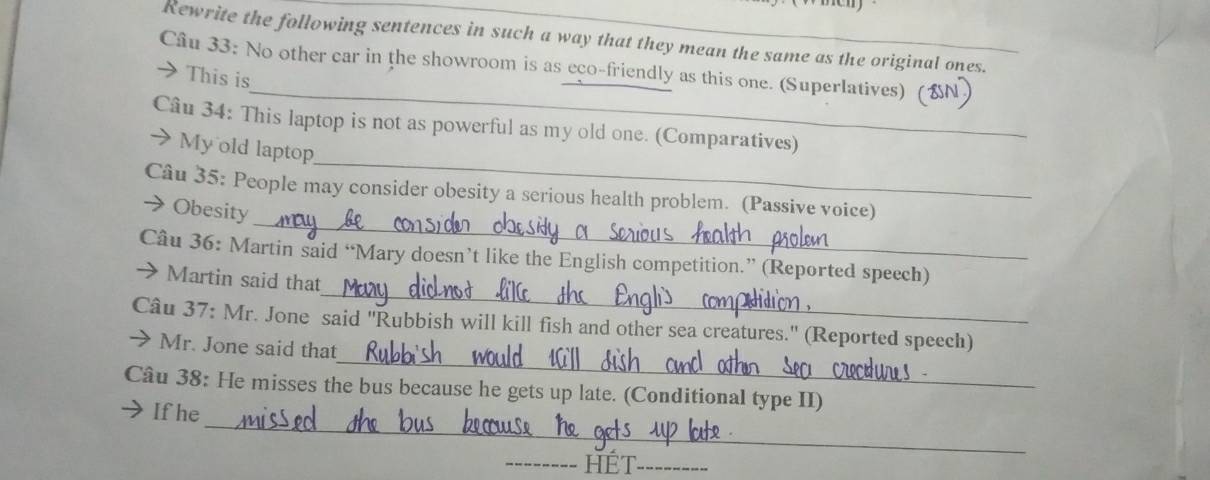 Rewrite the following sentences in such a way that they mean the same as the original ones.
Câu 33: No other car in the showroom is as eco-friendly as this one. (Superlatives) (SSN)
→ This is
Câu 34: This laptop is not as powerful as my old one. (Comparatives)
→ My old laptop
Câu 35: People may consider obesity a serious health problem. (Passive voice)
→ Obesity may be consider obesity a serious health prolem
Câu 36: Martin said “Mary doesn’t like the English competition.” (Reported speech)
→ Martin said that Mary did not like the Englis competition.
Câu 37: Mr. Jone said "Rubbish will kill fish and other sea creatures." (Reported speech)
→ Mr. Jone said that Rubbish would kill fish and other sea creatures.
Câu 38: He misses the bus because he gets up late. (Conditional type II)
→ If he missed the bus because he gets up late.
-------- HẾT--------